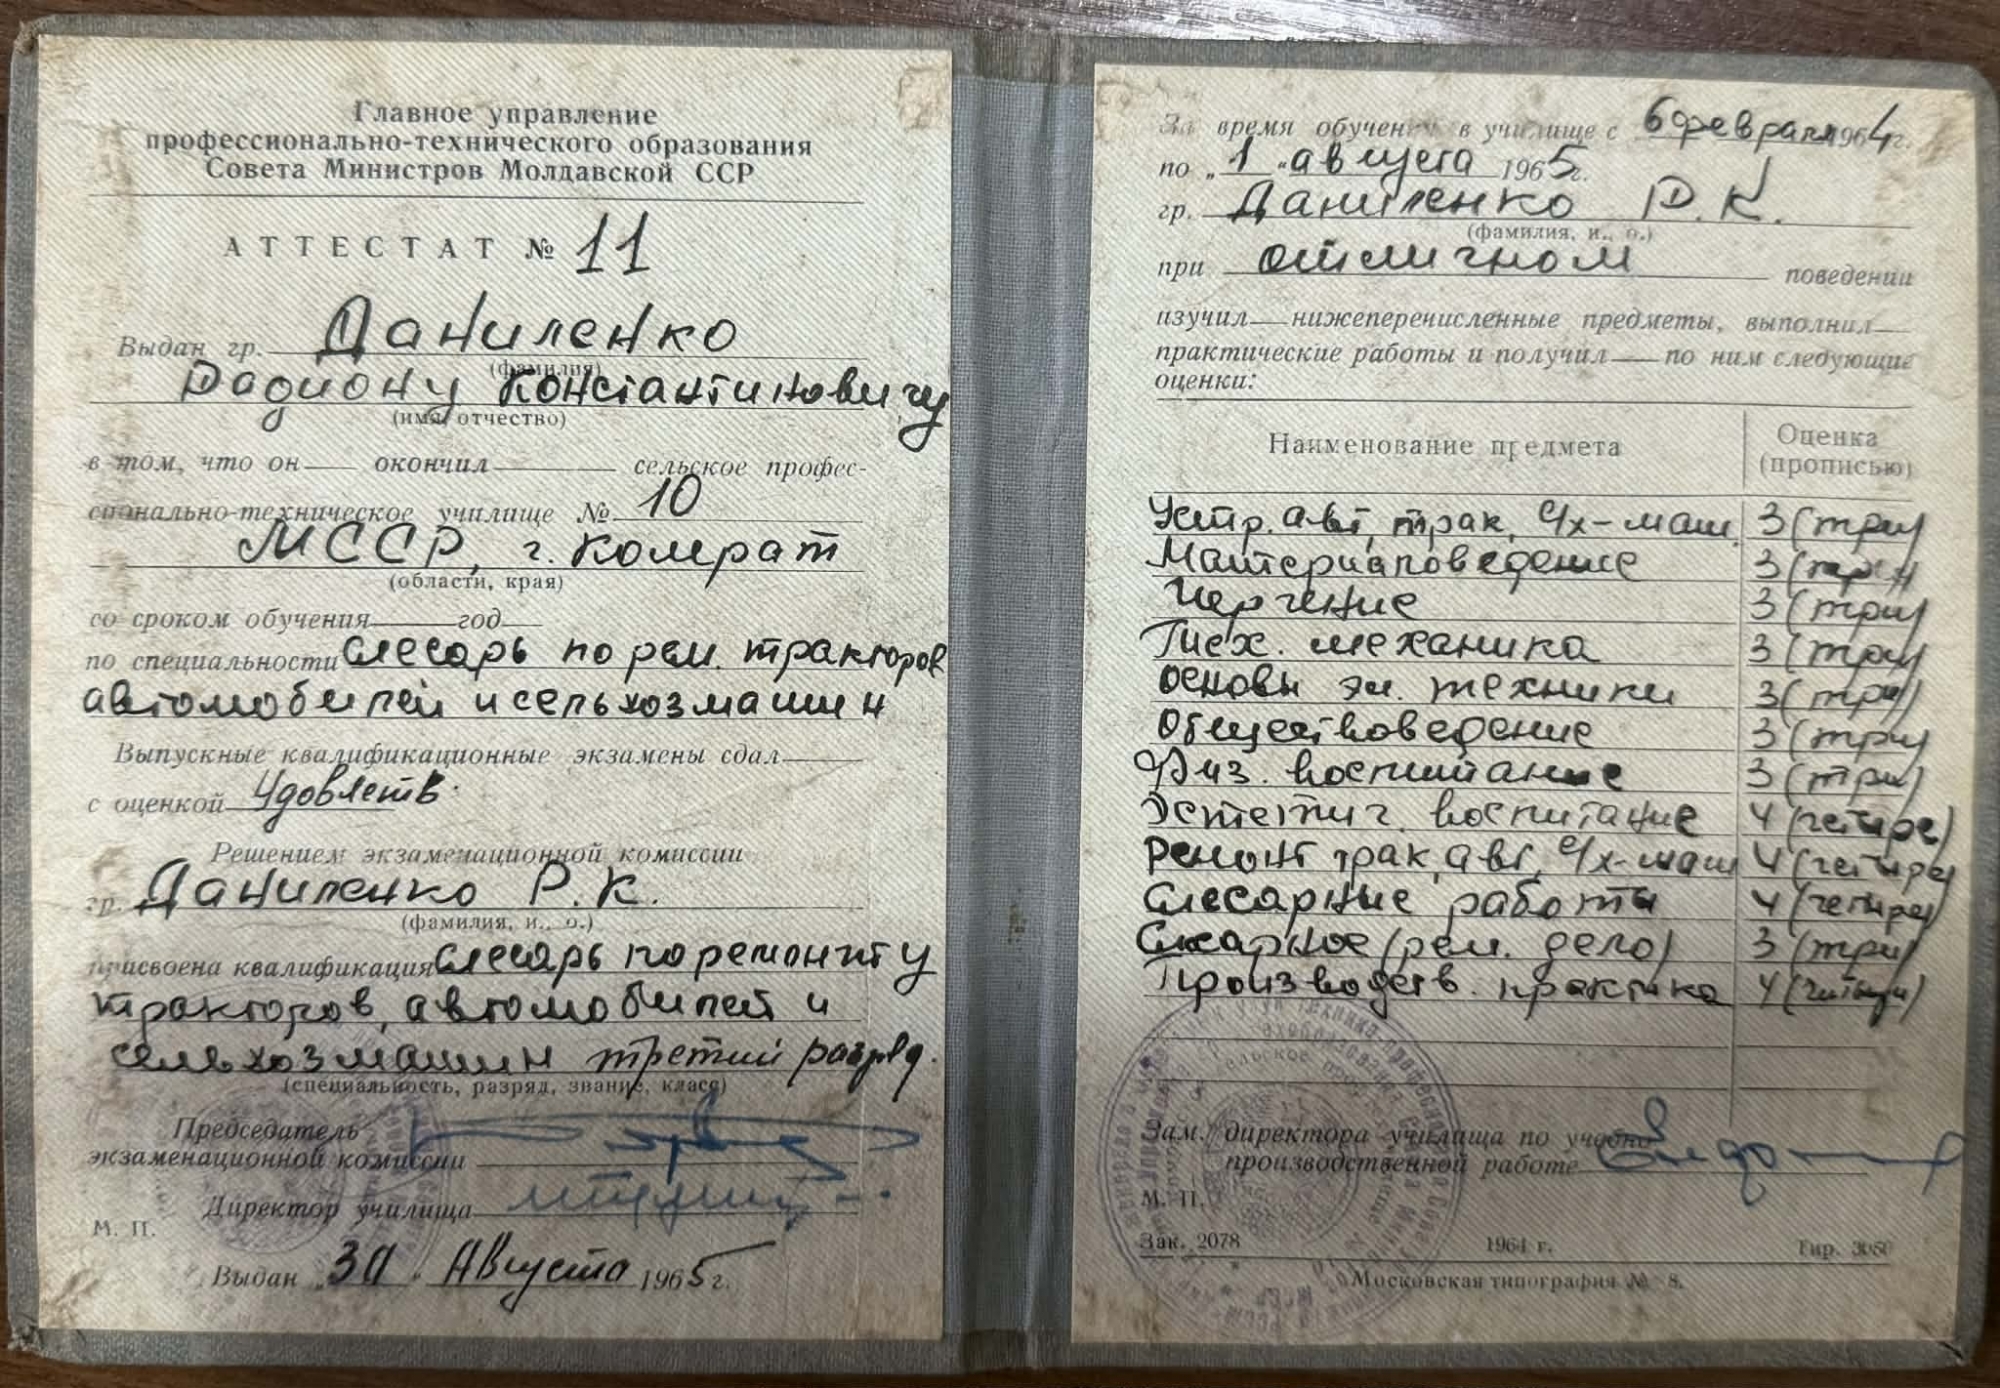 Главное управление
профессионально-технического образования
Совета Министров Молдавской ССР
АТТЕСТАТ № 11
Выдан гр. Даниленко
(фамилия)
Радиону Константиновичу
(имя, отчество)
в том, что он окончил сельское профес-
сионально-техническое училище № 10
МССР, г. Комрат
(области, края)
со сроком обучения год
по специальности слесарь по рем. тракторов
автомобилей и сельхозмашин
Выпускные квалификационные экзамены сдал
с оценкой Удовлетв.
Решением экзаменационной комиссии
гр. Даниленко Р. К.
(фамилия, и., о.)
присвоена квалификация слесарь по ремонту
тракторов, автомобилей и
сельхозмашин третий разряд.
(специальность, разряд, звание, класс)
Председатель
экзаменационной комиссии
Директор училища
М. П.
Выдан 30 Августа 1965 г.
За время обучения в училище с 6 февраля 1964 г.
по „1 августа 1965 г.
гр. Даниленко Р. К.
(фамилия, и., о.)
при отличном поведении
изучил нижеперечисленные предметы, выполнил
практические работы и получил по ним следующие
оценки:
Наименование предмета Оценка
(прописью)
Устр. авт, трак, с/х-маш. 3 (три)
Материаловедение 3 (три)
Черчение 3 (три)
Тех. механика 3 (три)
Основы эл. техники 3 (три)
Обществоведение 3 (три)
Физ. воспитание 3 (три)
Эстетич. воспитание 4 (четыре)
Ремонт трак, авт, с/х-маш 4 (четыре)
Слесарные работы 4 (четыре)
(рем. дело) 3 (три)
Производств. практика 4
Зам. директора училища по учебно
производственной работе
М. П.
Зак. 2078 1964 г. Тир.
Московская типография № 8.